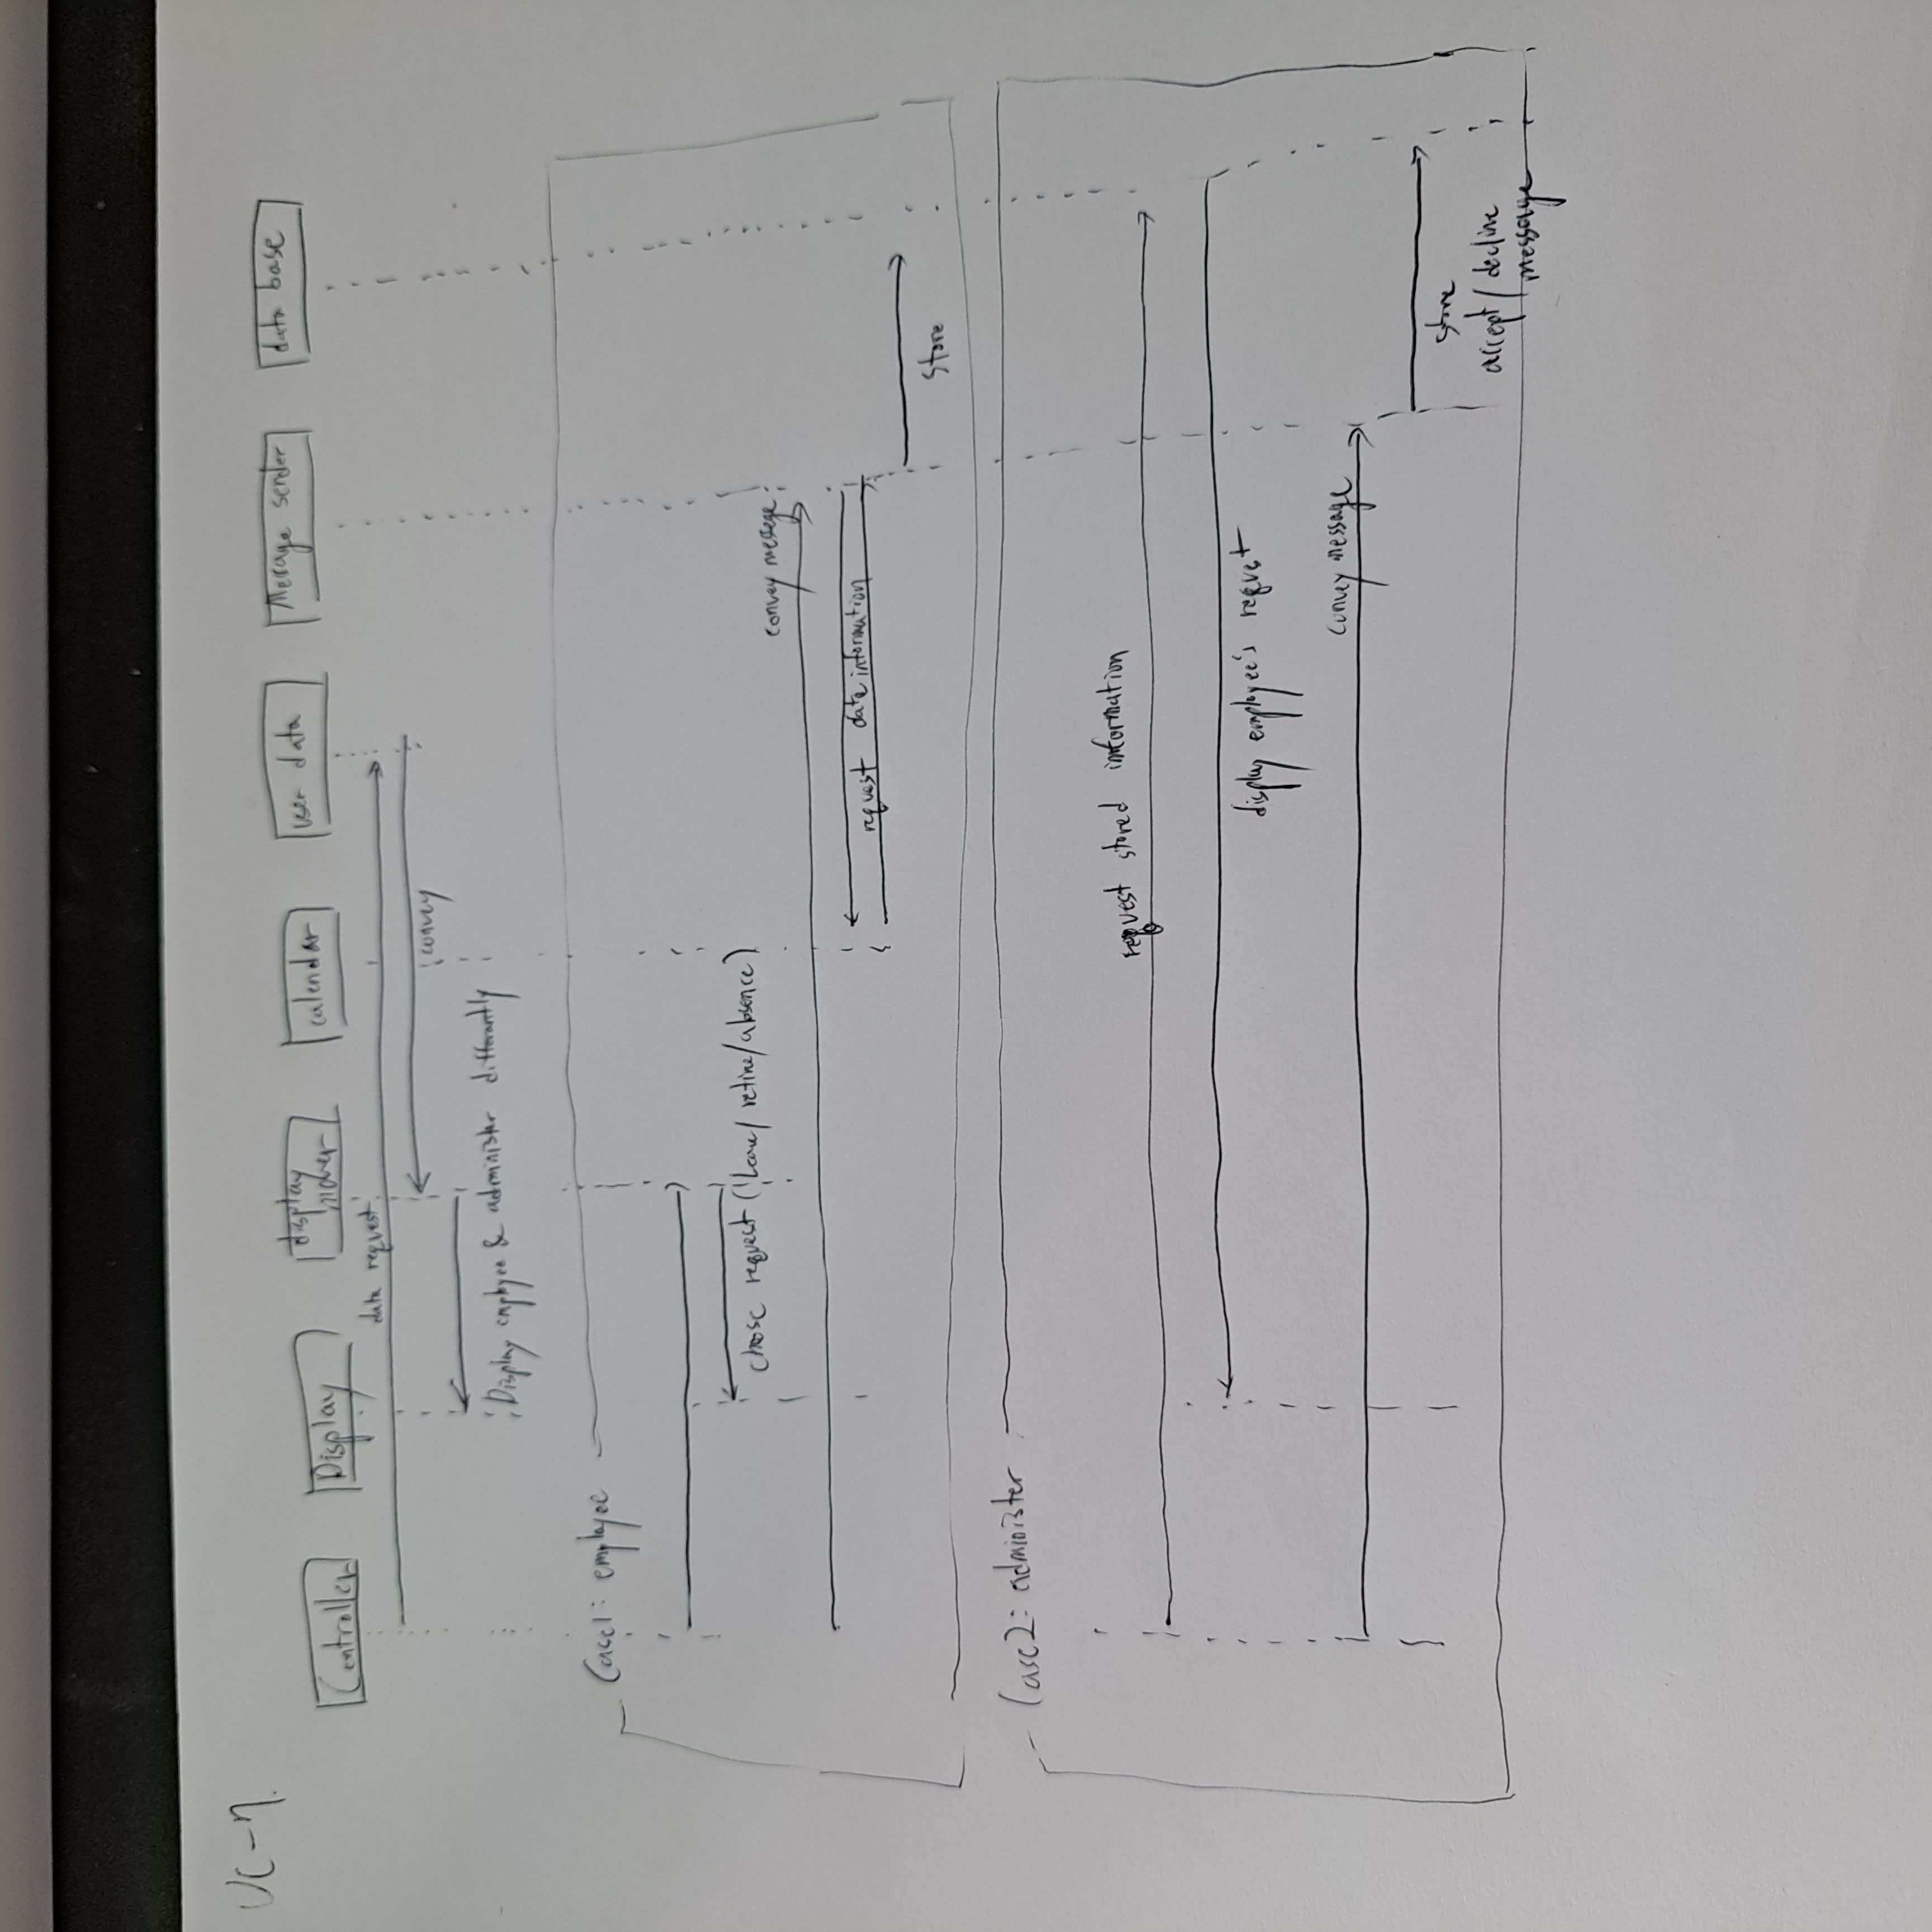 UC-7.
Controller
Display
display
calendar
user data
Message sender
data base
data request
convey
Display employee & administer differently
Case1: employee
chose request (Leave/ retire/absence)
convey messege
request date information
store
Case2: administer
request stored information
display employee's request
convey message
store
accept / decline
message